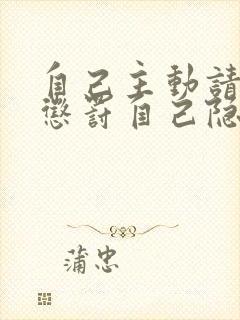 自己主動請
懲罰自己隐
蒲忠